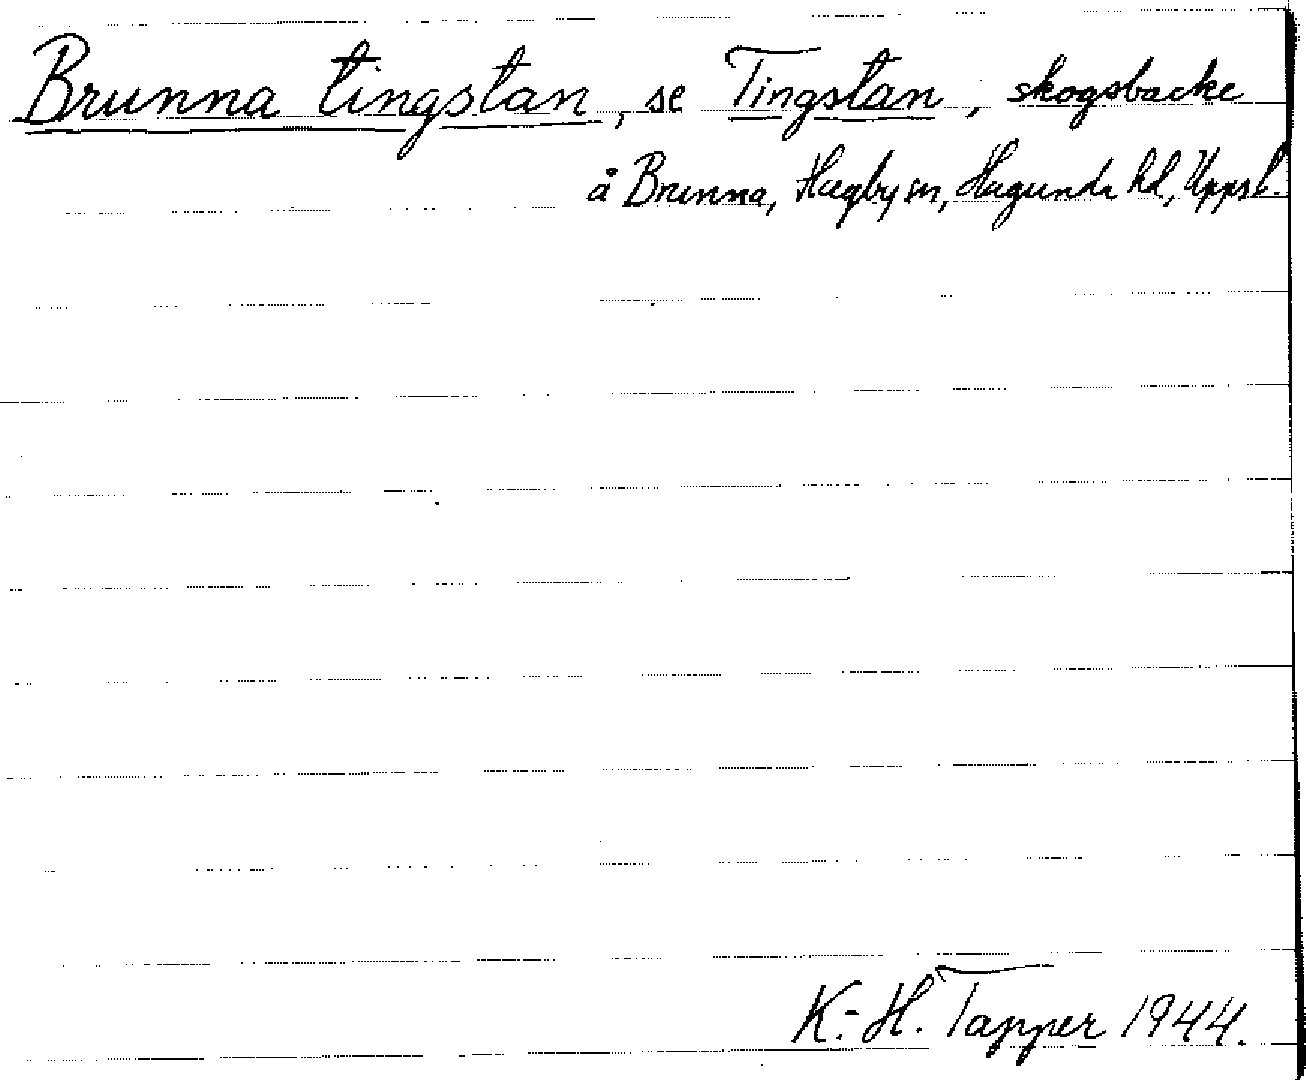 Brunna tingstan, se Tingstan, skogsbacke
å Brunna, Hagby sn, Hagunda hd., Uppsl.
K.-H. Tapper 1944.